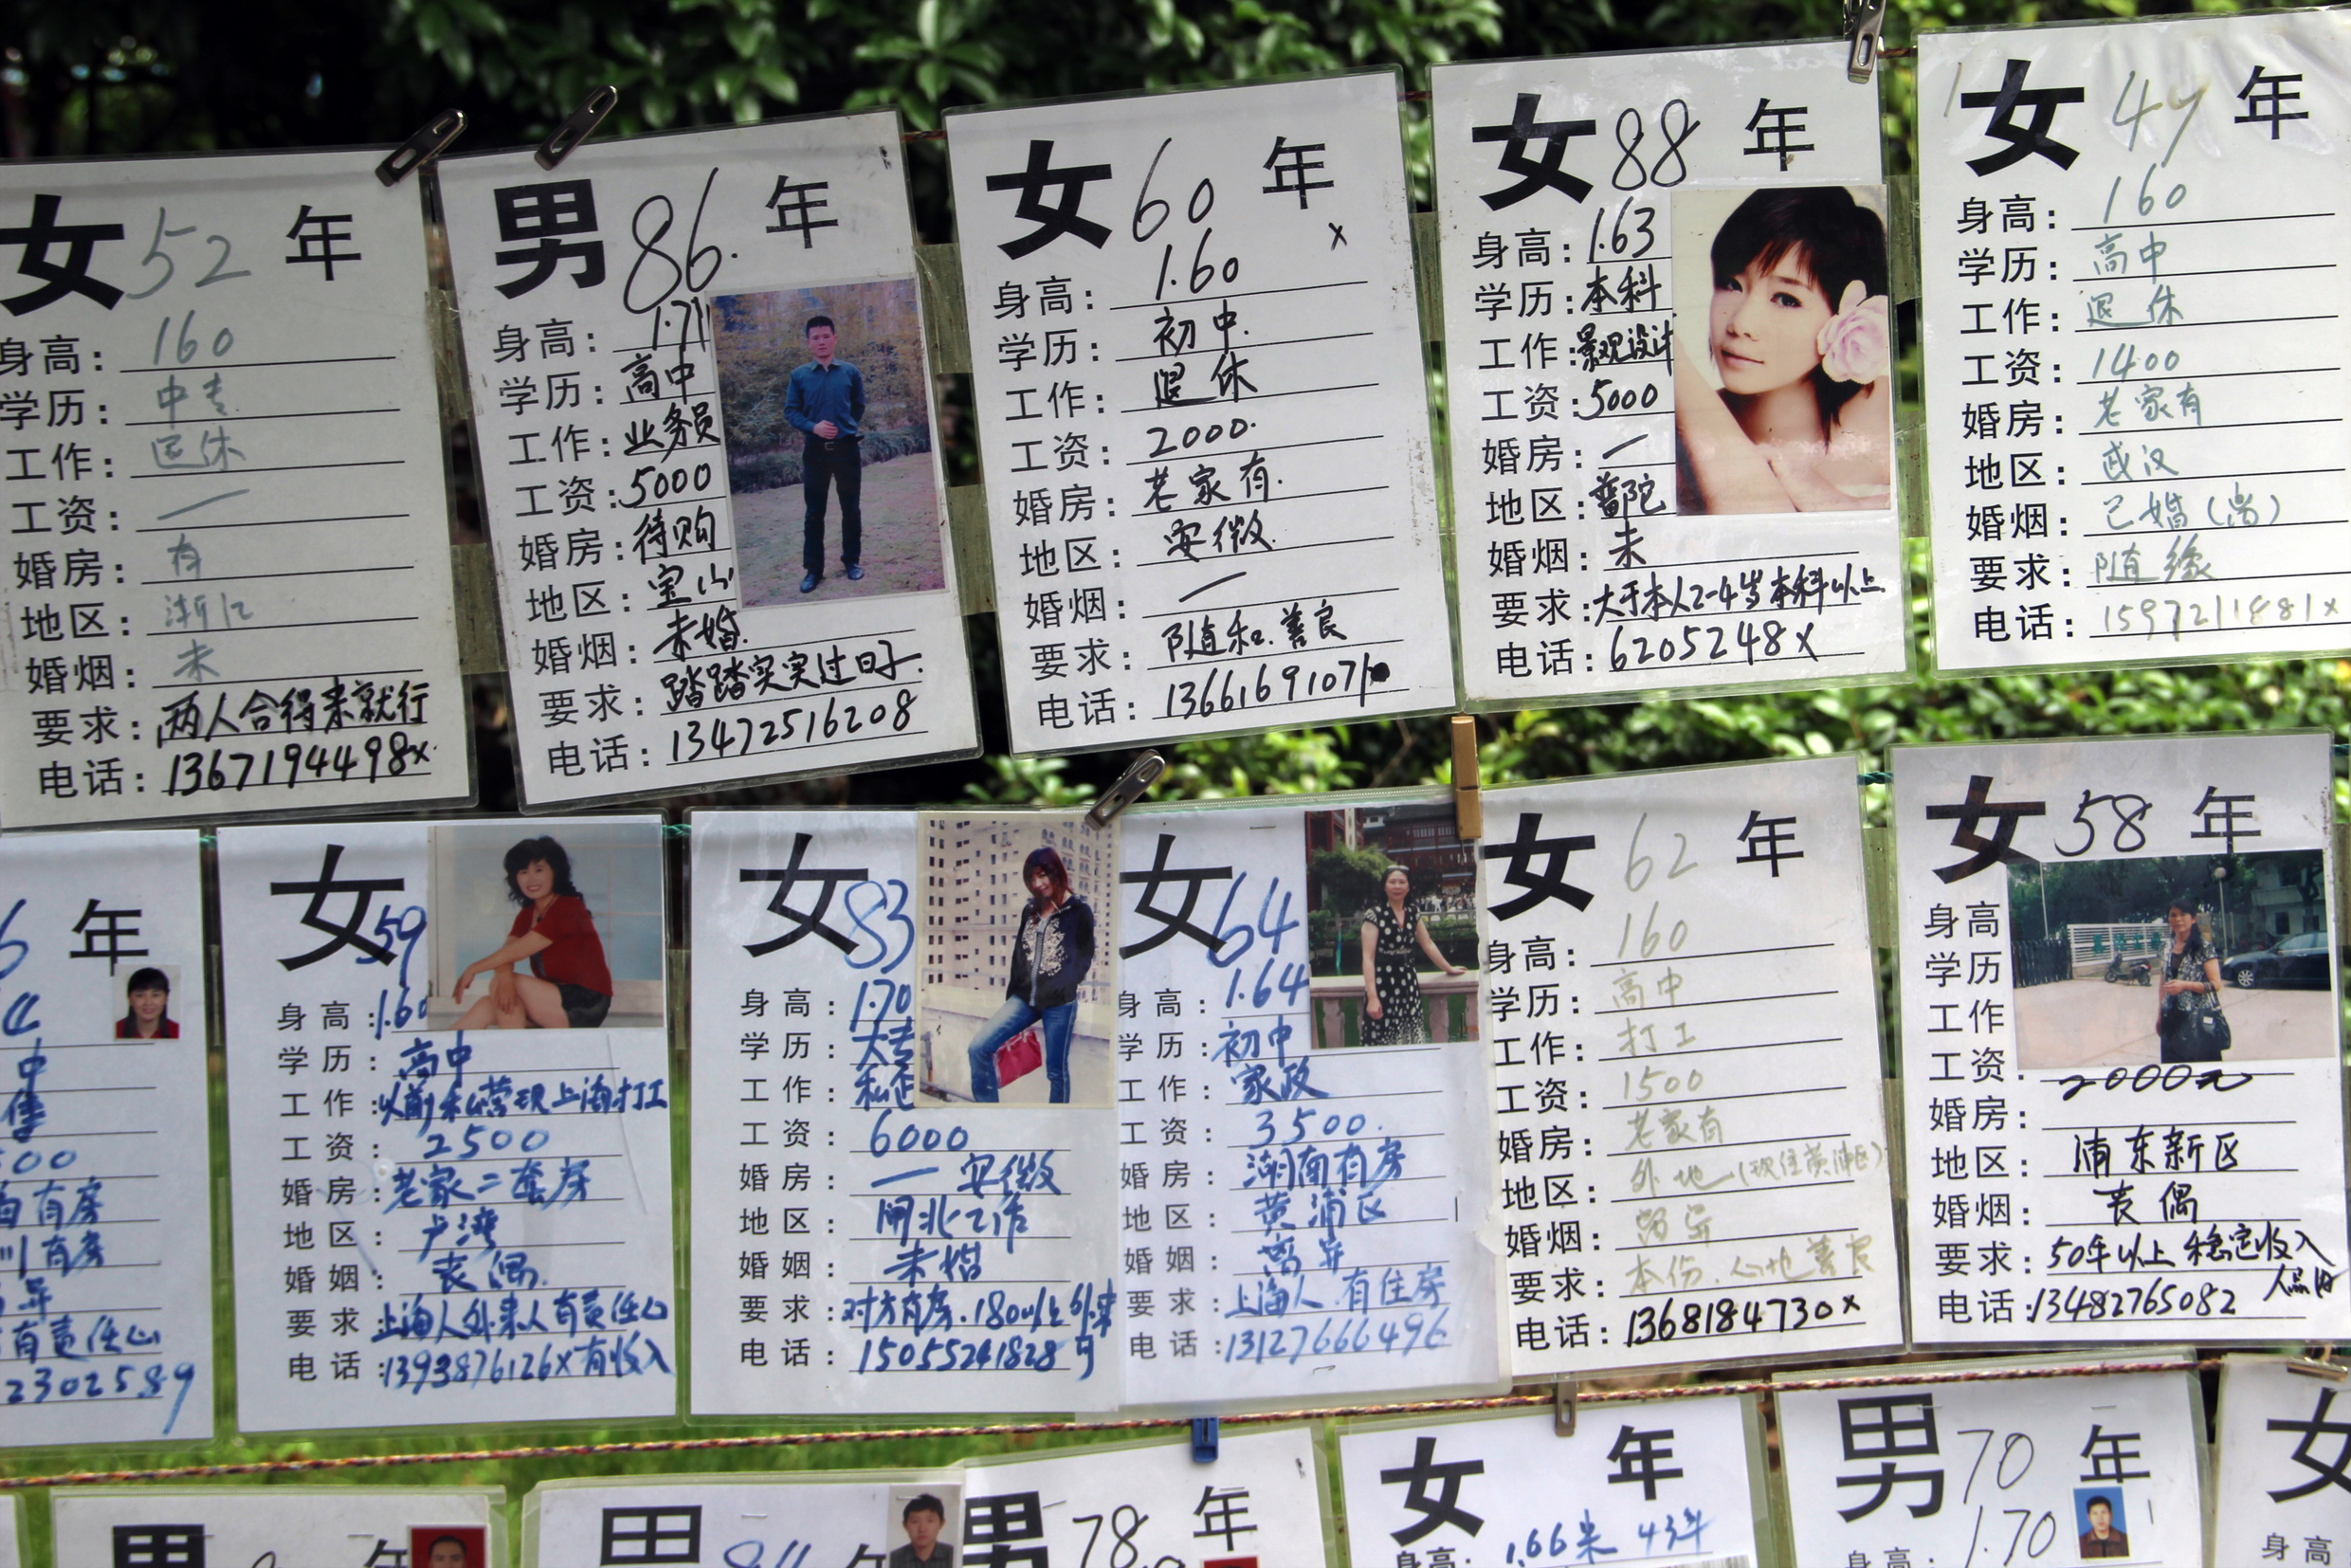 女 52 年
身高: 160
学历: 中专
工作: 退休
工资: 一
婚房: 有
地区: 浙江
婚烟: 未
要求: 两人合得来就行
电话: 1367194498x
男 86. 年
身高: 1.71
学历: 高中
工作: 业务员
工资: 5000
婚房: 待购
地区: 宝山
婚烟: 未婚
要求: 踏踏实实过日子.
电话: 13472516208
女 60 年
x
身高: 1.60
学历: 初中.
工作: 退休
工资: 2000.
婚房: 老家有.
地区: 安徽
婚烟: 一
要求: 随和.善良
电话: 1366169107
女 88 年
身高: 1.63
学历: 本科
工作: 景观设计
工资: 5000
婚房: 一
地区: 普陀
婚烟: 未
要求: 大于本人2-4岁本科以上
电话: 6205248x
女 47 年
身高: 160
学历: 高中
工作: 退休
工资: 1400
婚房: 老家有
地区: 武汉
婚烟: 已婚(离)
要求: 随缘
电话: 1597211881x
年
中
售
00
有房
川有房
年
有责任心
2302589
女 59
身高: 1.60
学历: 高中
工作: 以前私营现上海打工
工资: 2500
婚房: 老家二套房
地区: 卢湾
婚姻: 丧偶.
要求: 上海人外来人有责任心
电话: 1393876126x有收入
女 83
身高: 1.70
学历: 大专
工作: 私企
工资: 6000
婚房: 一 安徽
地区: 闸北工作
婚姻: 未婚
要求: 对方有房.180以上外来
电话: 15055241828 可
女 64
身高: 1.64
学历: 初中
工作: 家政
工资: 3500.
婚房: 湖南有房
地区: 黄浦区
婚姻: 离异
要求: 上海人.有住房
电话: 13127666496
女 62 年
身高: 160
学历: 高中
工作: 打工
工资: 1500
婚房: 老家有
地区: 外地(现住黄浦区)
婚烟: 离异
要求: 本份.心地善良
电话: 1368184730x
女 58 年
身高
学历
工作
工资: 2000元
婚房:
地区: 浦东新区
婚烟: 丧偶
要求: 50年以上 稳定收入
电话: 13482765082
男 年
男 84 年
男 78 年
女 年
身高: 1.66米 43年
男 70 年
身高: 1.70
女
身高